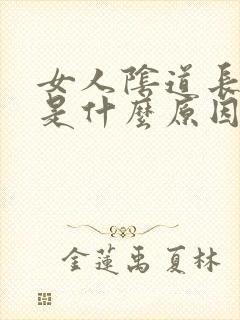 女人陰道長
是什麼原因
金蓮禹 夏林